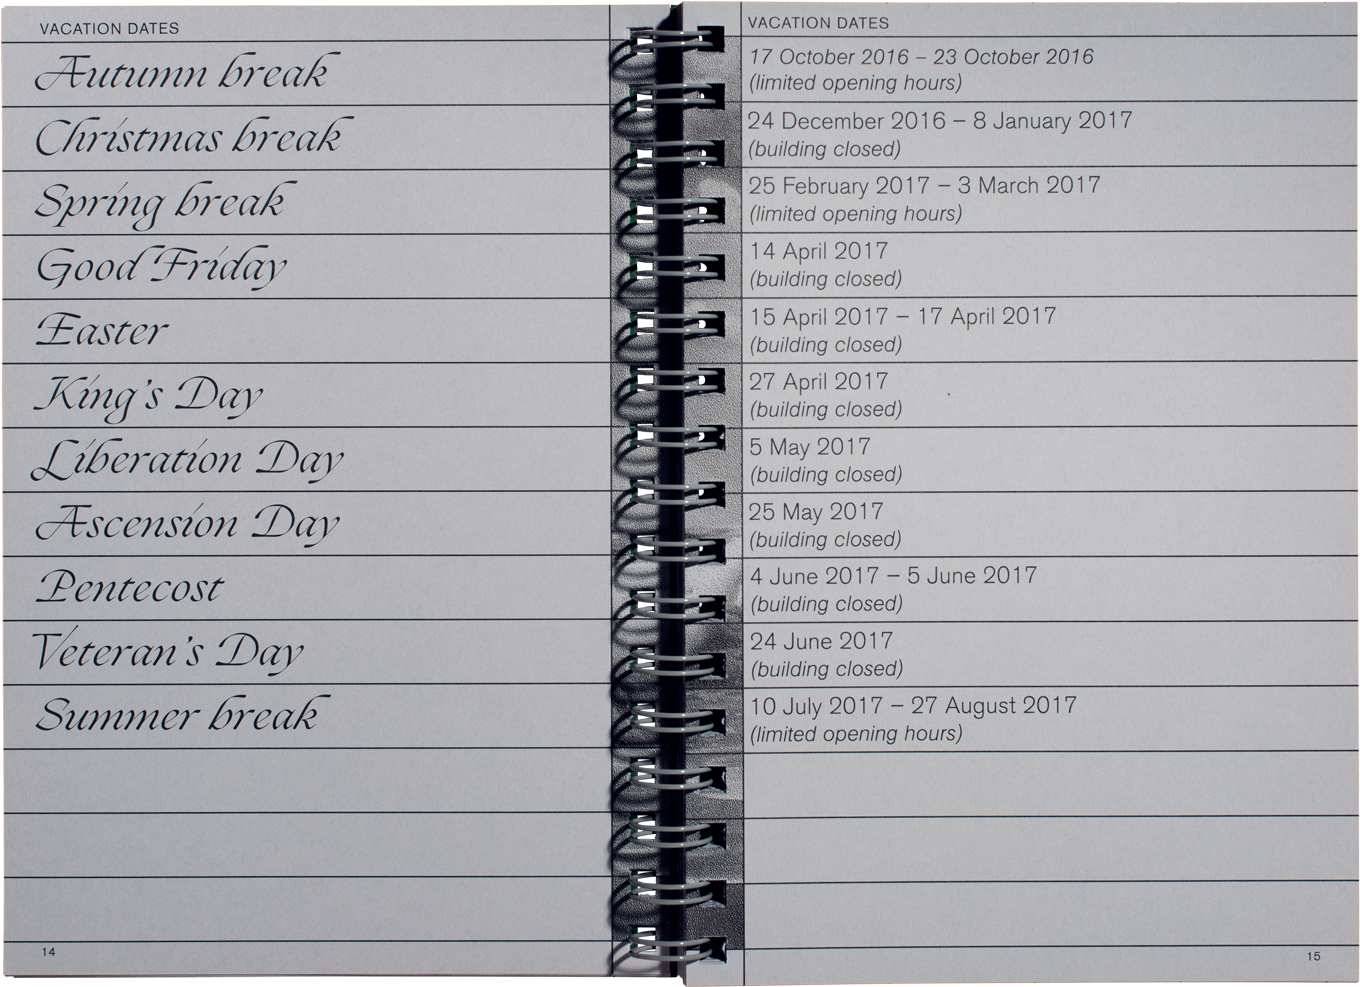 VACATION DATES
Autumn break
Christmas break
Spring break
Good Friday
Easter
King's Day
Liberation Day
Ascension Day
Pentecost
Veteran's Day
Summer break
14
VACATION DATES
17 October 2016 – 23 October 2016
(limited opening hours)
24 December 2016 – 8 January 2017
(building closed)
25 February 2017 – 3 March 2017
(limited opening hours)
14 April 2017
(building closed)
15 April 2017 – 17 April 2017
(building closed)
27 April 2017
(building closed)
5 May 2017
(building closed)
25 May 2017
(building closed)
4 June 2017 – 5 June 2017
(building closed)
24 June 2017
(building closed)
10 July 2017 – 27 August 2017
(limited opening hours)
15